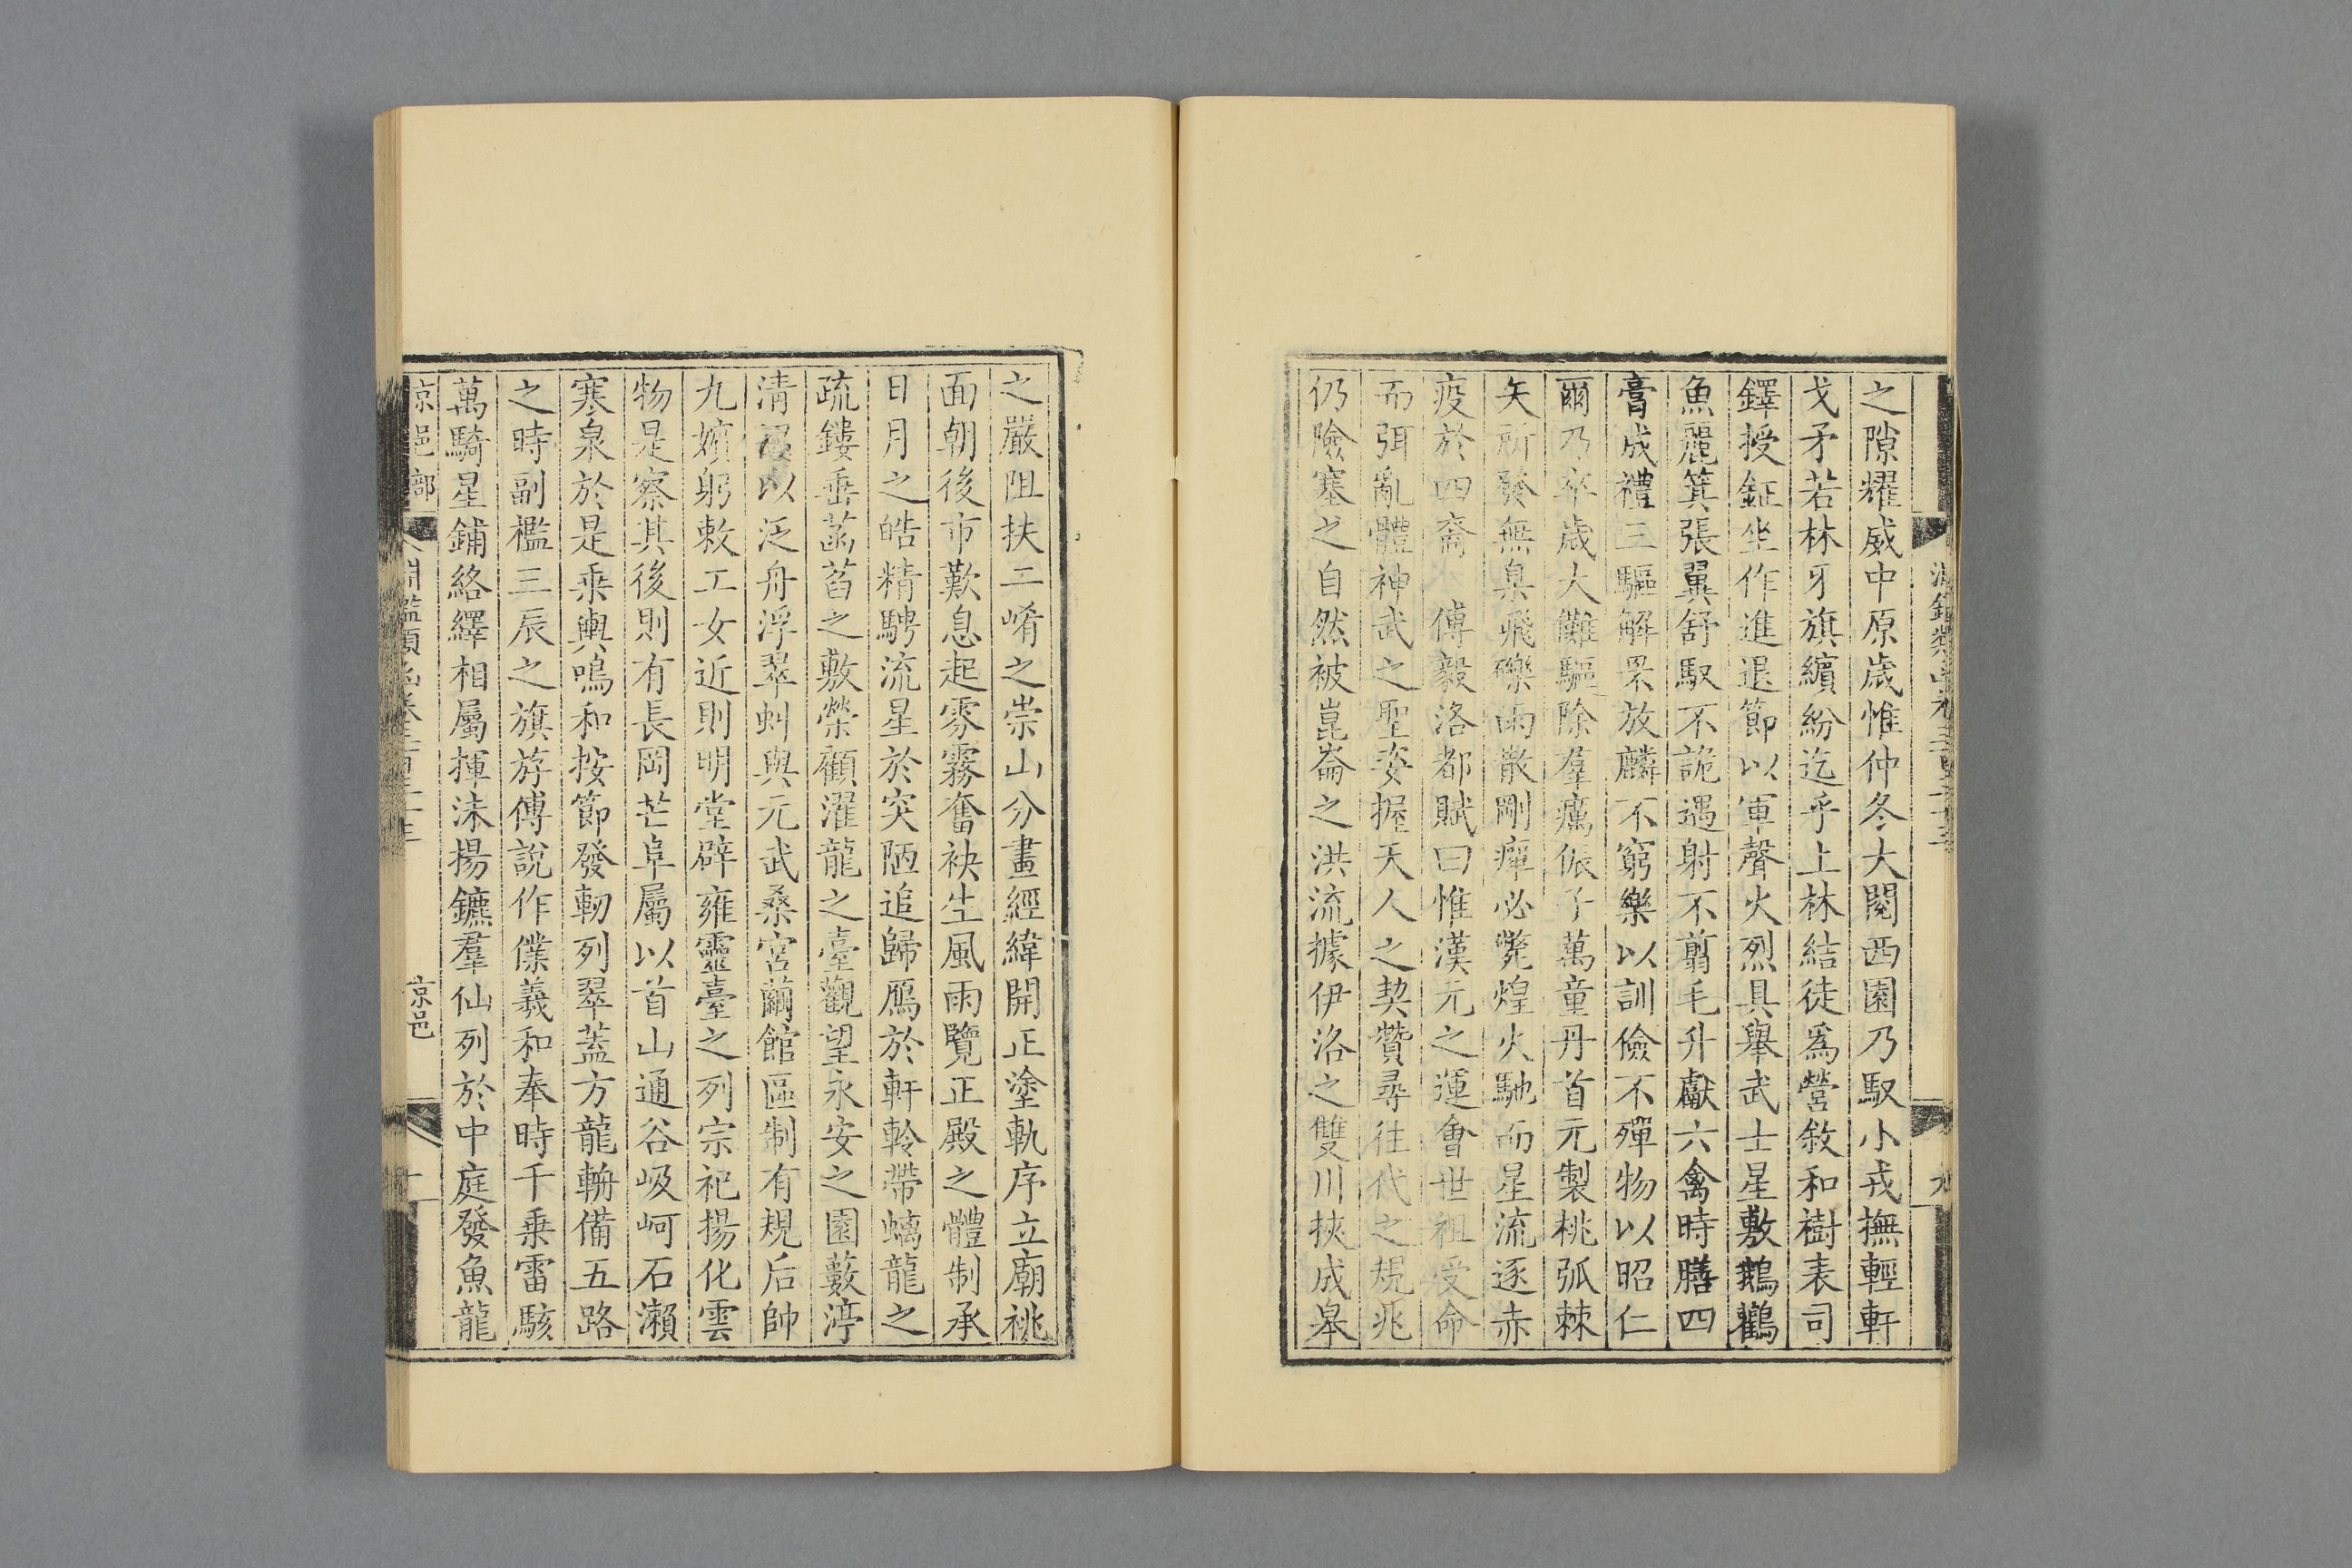 之隙耀威中原歲惟仲冬大閱西園乃馭小戎撫輕軒
戈矛若林牙旗繽紛迄乎上林結徒爲營敘和樹表司
鐸授鉦坐作進退節以軍聲火烈具舉武士星敷鵝鸛
魚麗箕張翼舒馭不詭遇射不翦毛升獻六禽時膳四
膏成禮三驅解罘放麟不窮樂以訓儉不殫物以昭仁
爾乃卒歲大儺驅除羣癘侲子萬童丹首元製桃弧棘
矢所發無臬飛礫雨散剛癉必斃煌火馳而星流逐赤
疫於四裔 傅毅洛都賦曰惟漢元之運會世祖受命
而弭亂體神武之聖姿握天人之契贊尋往代之規兆
仍險塞之自然被崑崙之洪流據伊洛之雙川挾成皋
之嚴阻扶二崤之崇山分畫經緯開正塗軌序立廟祧
面朝後市歎息起雰霧奮袂生風雨覽正殿之體制承
日月之皓精騁流星於突陋追歸鴈於軒軨帶螭龍之
疏鏤垂菡萏之敷榮顧濯龍之臺觀望永安之園藪渟
清沼以泛舟浮翠虯與元武桑宮繭館區制有規后帥
九嬪躬敕工女近則明堂辟雍靈臺之列宗祀揚化雲
物是察其後則有長岡芒阜屬以首山通谷岋岢石瀨
寒泉於是乘輿鳴和按節發軔列翠蓋方龍輈備五路
之時副檻三辰之旗斿傅說作僕羲和奉時千乘雷駭
萬騎星鋪絡繹相屬揮沫揚鑣羣仙列於中庭發魚龍
京邑部
京邑